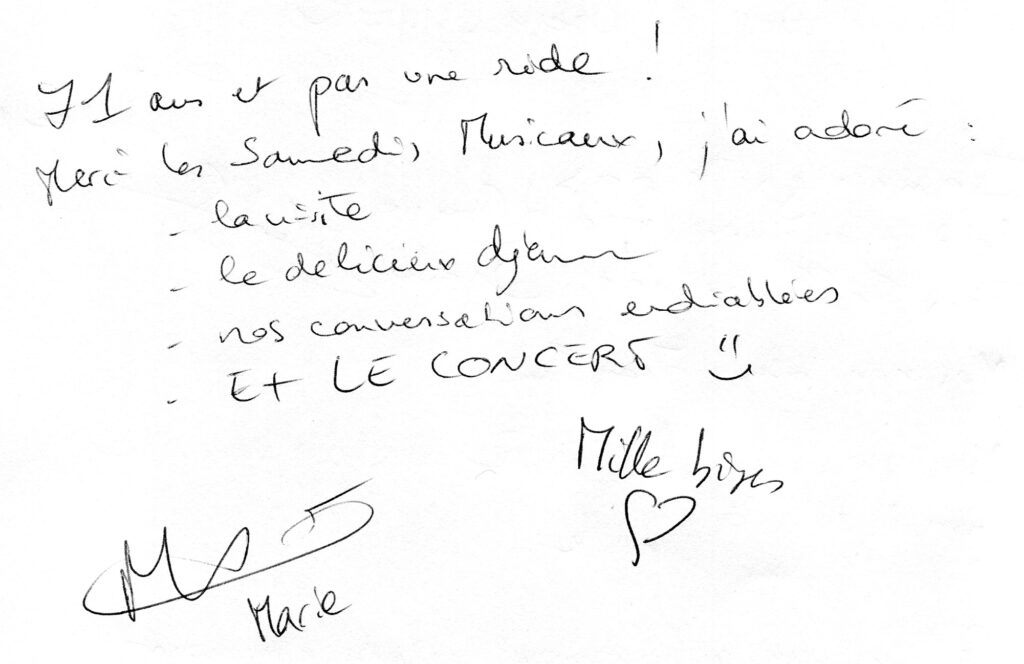 71 ans et pas une ride !
Merci les Samedis Musicaux, j'ai adoré :
- la visite
- le delicieux djeuner
- nos conversations endiablées
- ET LE CONCERT
Mille bises
Marie